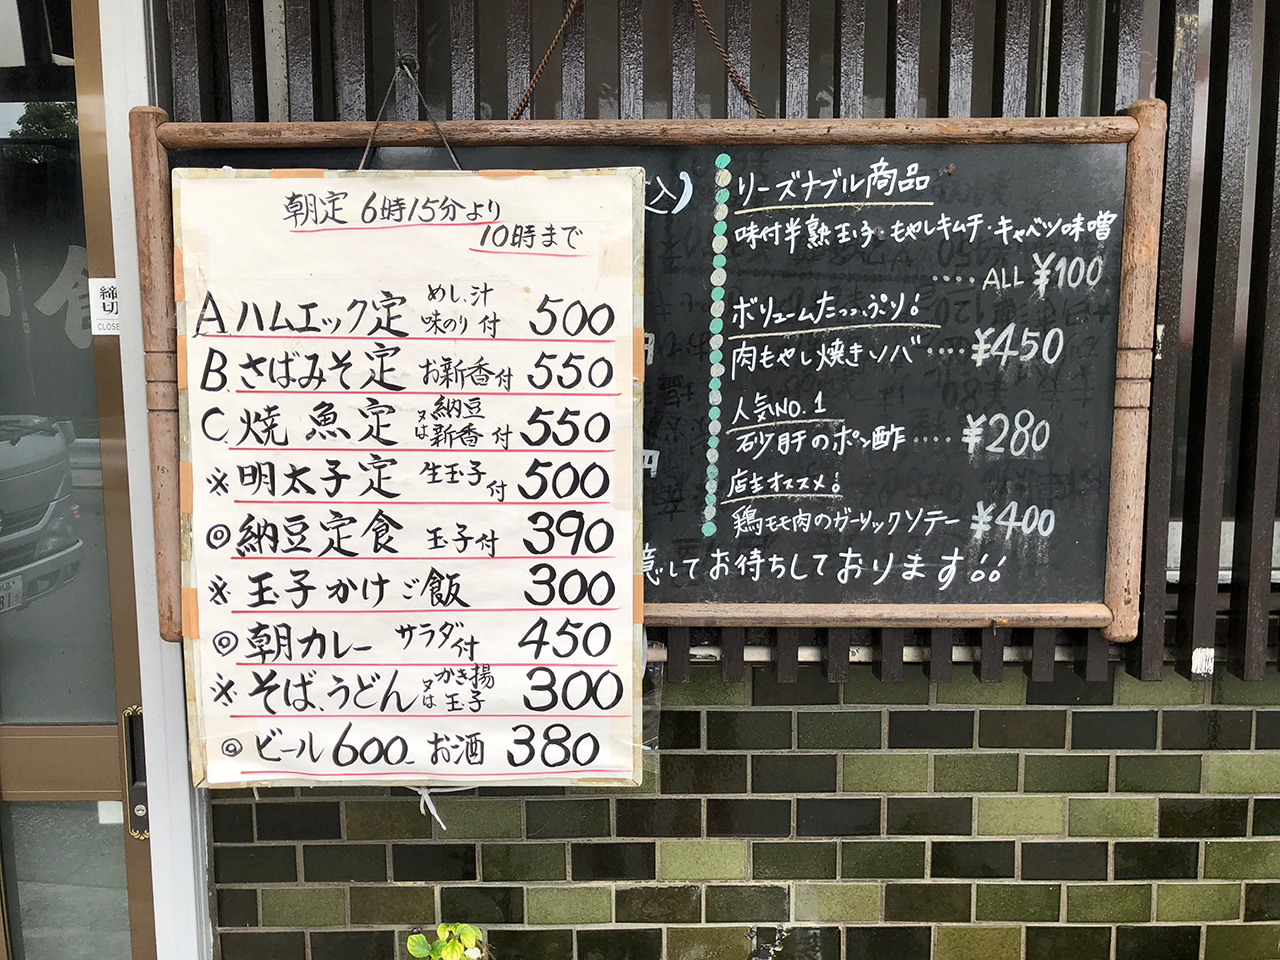 朝定 6時15分より
10時まで
A ハムエック定 めし、汁 味のり 付 500
B. さばみそ定 お新香付 550
C. 焼魚定 又は 納豆 新香 付 550
※ 明太子定 生玉子付 500
◎ 納豆定食 玉子付 390
※ 玉子かけご飯 300
◎ 朝カレー サラダ付 450
※ そば、うどん 又は かき揚 玉子 300
◎ ビール 600 お酒 380
込)
リーズナブル商品
味付半熟玉子・もやしキムチ・キャベツ味噌
‥‥ ALL ¥100
ボリュームたっぷり!
肉もやし焼きソバ ‥‥ ¥450
人気NO.1
砂肝のポン酢 ‥‥ ¥280
店主オススメ!
鶏モモ肉のガーリックソテー ¥400
意してお待ちしております!!
円
円
締切
CLOSE